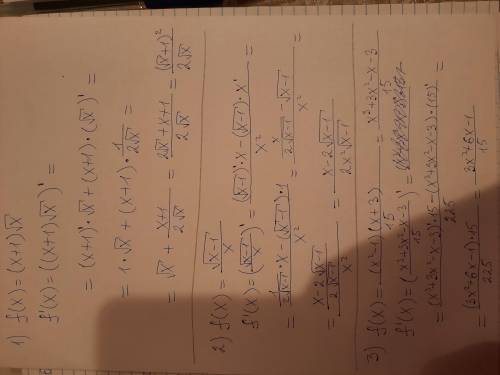 1) f(x)=(x+1)√x
f'(x)=((x+1)√x)'=
=(x+1)'·√x+(x+1)·(√x)'=
=1·√x+(x+1)·1/(2√x)=
=√x+(x+1)/(2√x)=(2√x+x+1)/(2√x)=(√x+1)²/(2√x)
2) f(x)=√(x-1)/x
f'(x)=(√(x-1)/x)'=((√(x-1))'·x-(√(x-1))·x')/x²=
=(1/(2√(x-1))·x-(√(x-1))·1)/x²=(x/(2√(x-1))-√(x-1))/x²=
=((x-2√(x-1))/(2√(x-1)))/x²=(x-2√(x-1))/(2x²√(x-1))
3) f(x)=(x²-1)(x+3)/15=(x³+3x²-x-3)/15
f'(x)=((x³+3x²-x-3)/15)'=
=((x³+3x²-x-3)'·15-(x³+3x²-x-3)·(15)')/225=
=((3x²+6x-1)·15)/225=(3x²+6x-1)/15